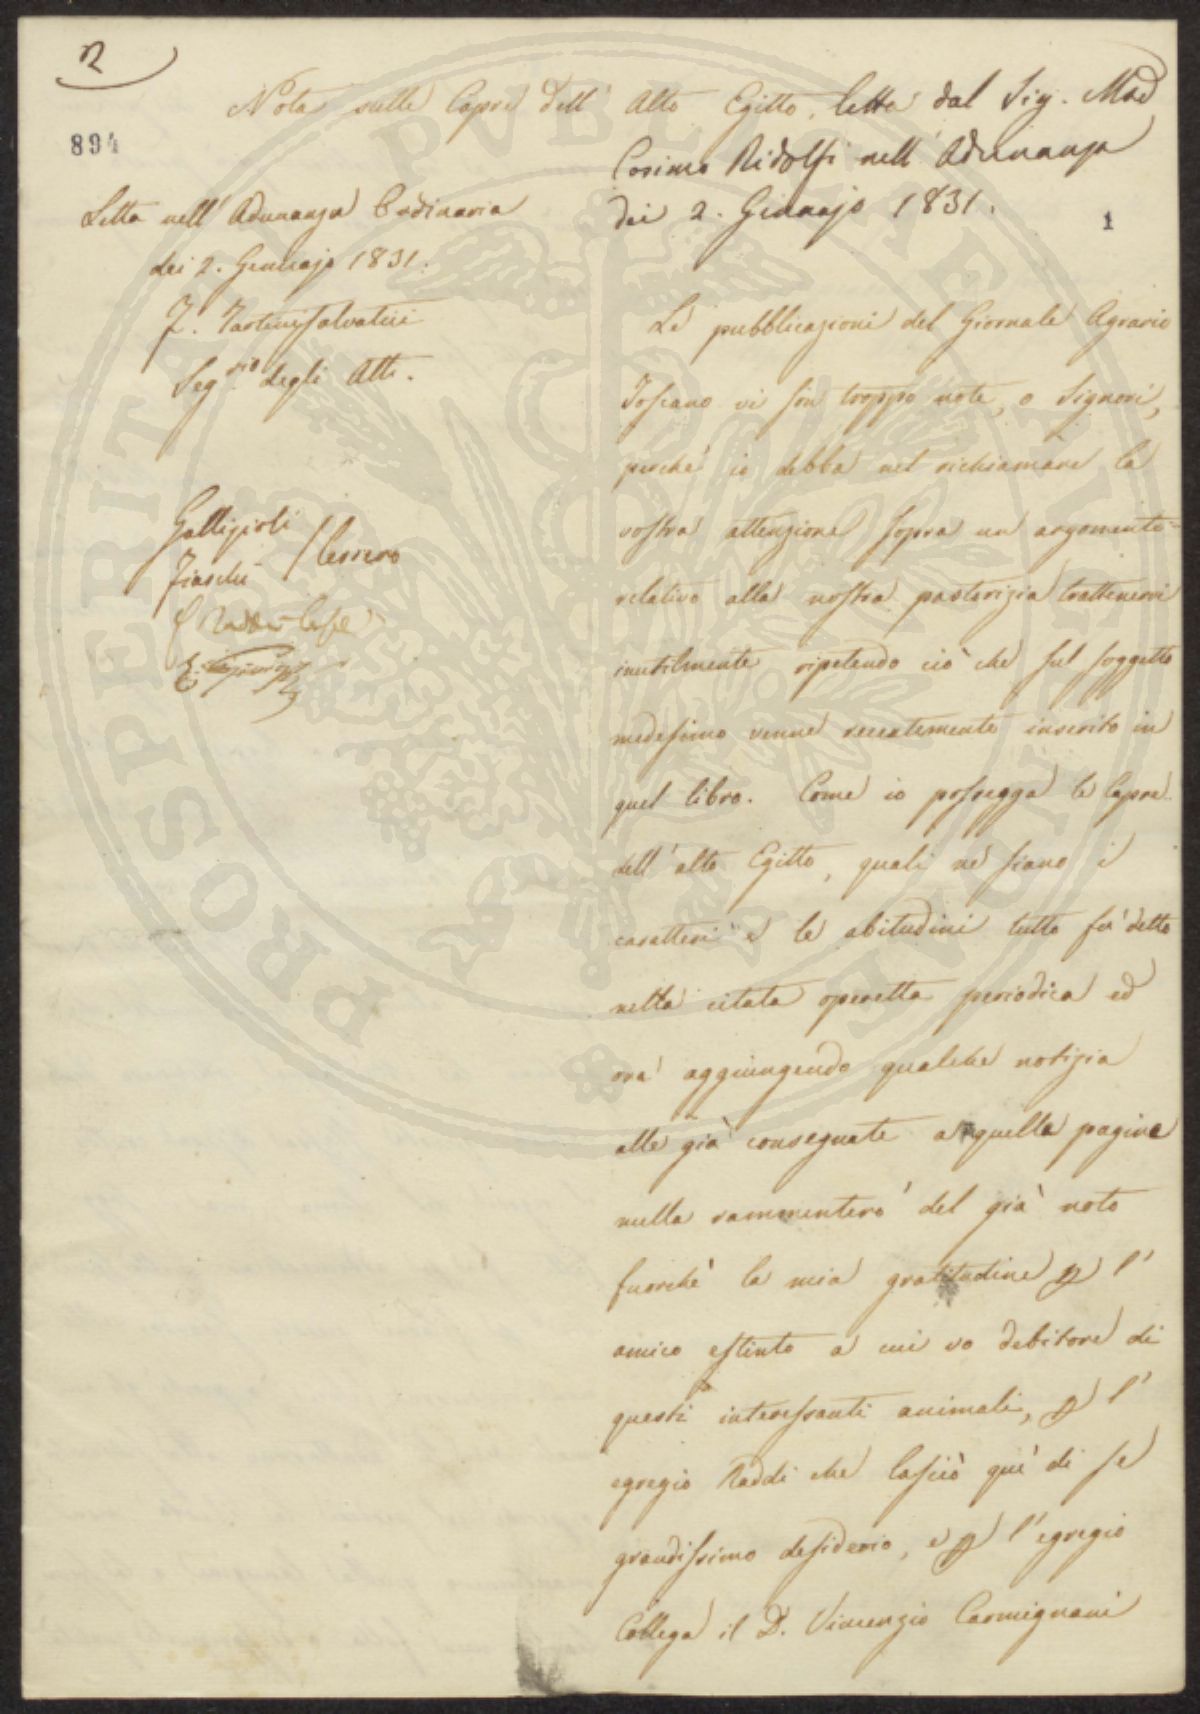 2
894
Nota sulle Capre dell' Alto Egitto, letta dal Sig. Mse
Cosimo Ridolfi nell' Adunanza
dei 2. Gennajo 1831.
1
Letta nell' Adunanza Ordinaria
dei 2. Gennajo 1831.
F. Tartini Salvatici
Seg.rio degli Atti.
Gallizioli
Fiaschi
Le pubblicazioni del Giornale Agrario
Toscano vi son troppo note, o Signori,
perchè io debba nel richiamare la
vostra attenzione sopra un argomento
relativo alla nostra pastorizia trattenervi
inutilmente ripetendo ciò che sul soggetto
medesimo venne recentemente inserito in
quel libro. Come io possegga le Capre
dell' alto Egitto, quali ne siano i
caratteri e le abitudini tutto fu detto
nella citata operetta periodica ed
ora aggiungendo qualche notizia
alle già consegnate a quelle pagine
nulla rammenterò del già noto
fuorchè la mia gratitudine p l'
amico estinto a cui vo debitore di
questi interessanti animali, p l'
egregio Raddi che lasciò quì di se
grandissimo desiderio, e p l'egregio
Collega il D. Vincenzio Carmignani
PUBLICAE
PROSPERITATI